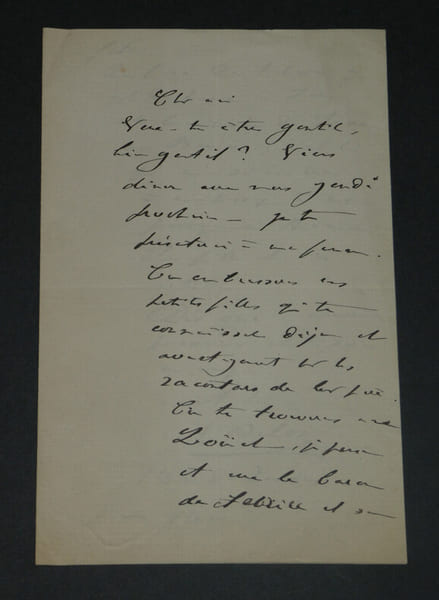 Cher ami
Veux-tu être gentil,
bien gentil? Viens
dîner avec nous jeudi
prochain – je te
présenterai à ma femme.
Tu embrasseras mes
petites filles qui te
connaissent déjà et
par les
racontars de leur père.
Tu te trouveras avec
je pense
et avec le baron
de et sa